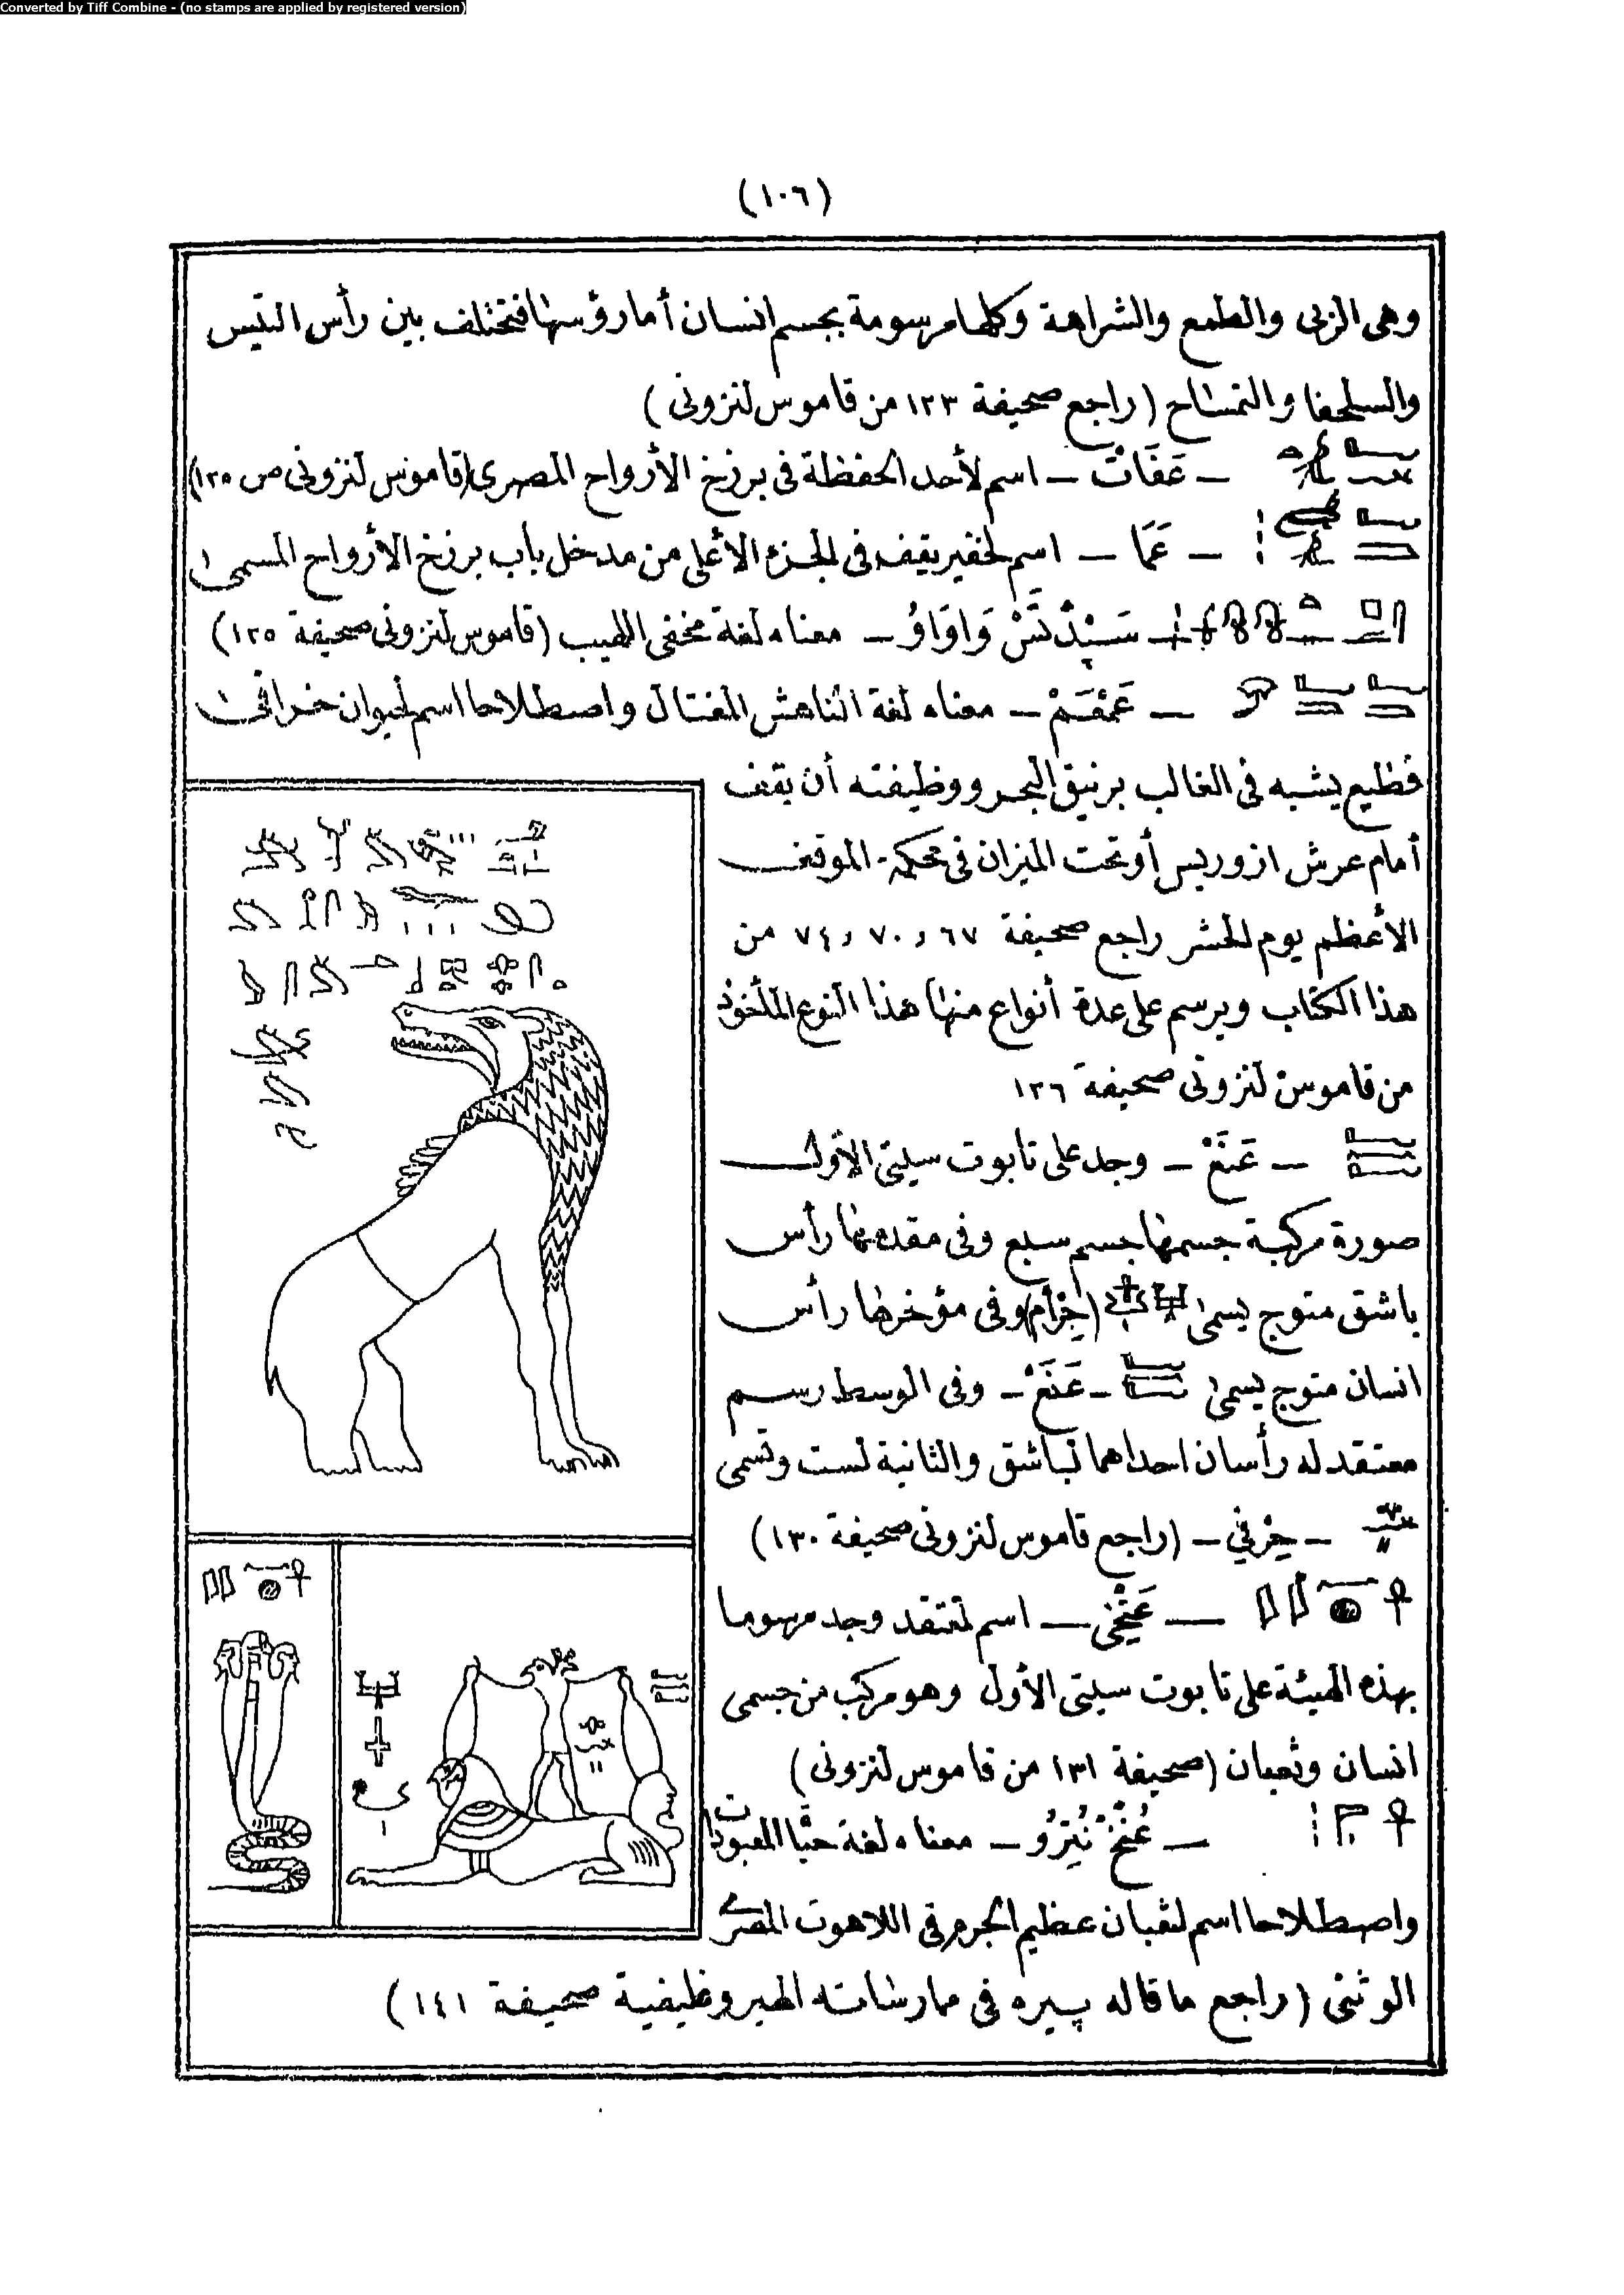 Converted by Tiff Combine - (no stamps are applied by registered version)
(١٠٦)
وهى الزنى والطمع والشراهة وكلها مرسومة بجسم انسان أما رؤسها فتختلف بين رأس التيس
والسلحفا والتمساح (راجع صحيفة ١٢٣ من قاموس لنزونى)
– عَفَاتْ – اسم لأحد الحفظة فى برزخ الأرواح المصرى (قاموس لنزونى ص ١٢٥)
– عَمَا – اسم لخفير يقف فى الجزء الأعلى من مدخل باب برزخ الأرواح المسمى
– معناه لغة مخفى الطيب (قاموس لنزونى صحيفة ١٢٥)
– عَمْعَمْ – معناه لغة الناهش المغتال واصطلاحا اسم لحيوان خرافى
فظيع يشبه فى الغالب برنيق البحر ووظيفته أن يقف
أمام عرش ازوريس أو تحت الميزان فى محكمة الموقف
الأعظم يوم الحشر راجع صحيفة ٦٧ و ٧٠ و ٧٤ من
هذا الكتاب ويرسم على عدة أنواع منها هذا النوع المأخوذ
من قاموس لنزونى صحيفة ١٢٦
– عَنَعْ – وجد على تابوت سيتى الأول
صورة مركبة جسمها جسم سبع وفى مقدمها رأس
باشق متوج يسمى وفى مؤخرها رأس
انسان متوج يسمى – عَنَعْ – وفى الوسط رسم
معتقد له رأسان احداهما لباشق والثانية لست وتسمى
– حِرْفِي – (راجع قاموس لنزونى صحيفة ١٣٠)
– عَنْخِى – اسم لمعتقد وجد مرسوما
بهذه الهيئة على تابوت سيتى الأول وهو مركب من جسمى
انسان وثعبان (صحيفة ١٣١ من قاموس لنزونى)
– عُنْخْ نُتِرُو – معناه لغة المعبودات
واصطلاحا اسم لثعبان عظيم الجرم فى اللاهوت المصرى
الوثنى (راجع ما قاله پيره فى ممارساته الهيروغليفية صحيفة ١٤١)